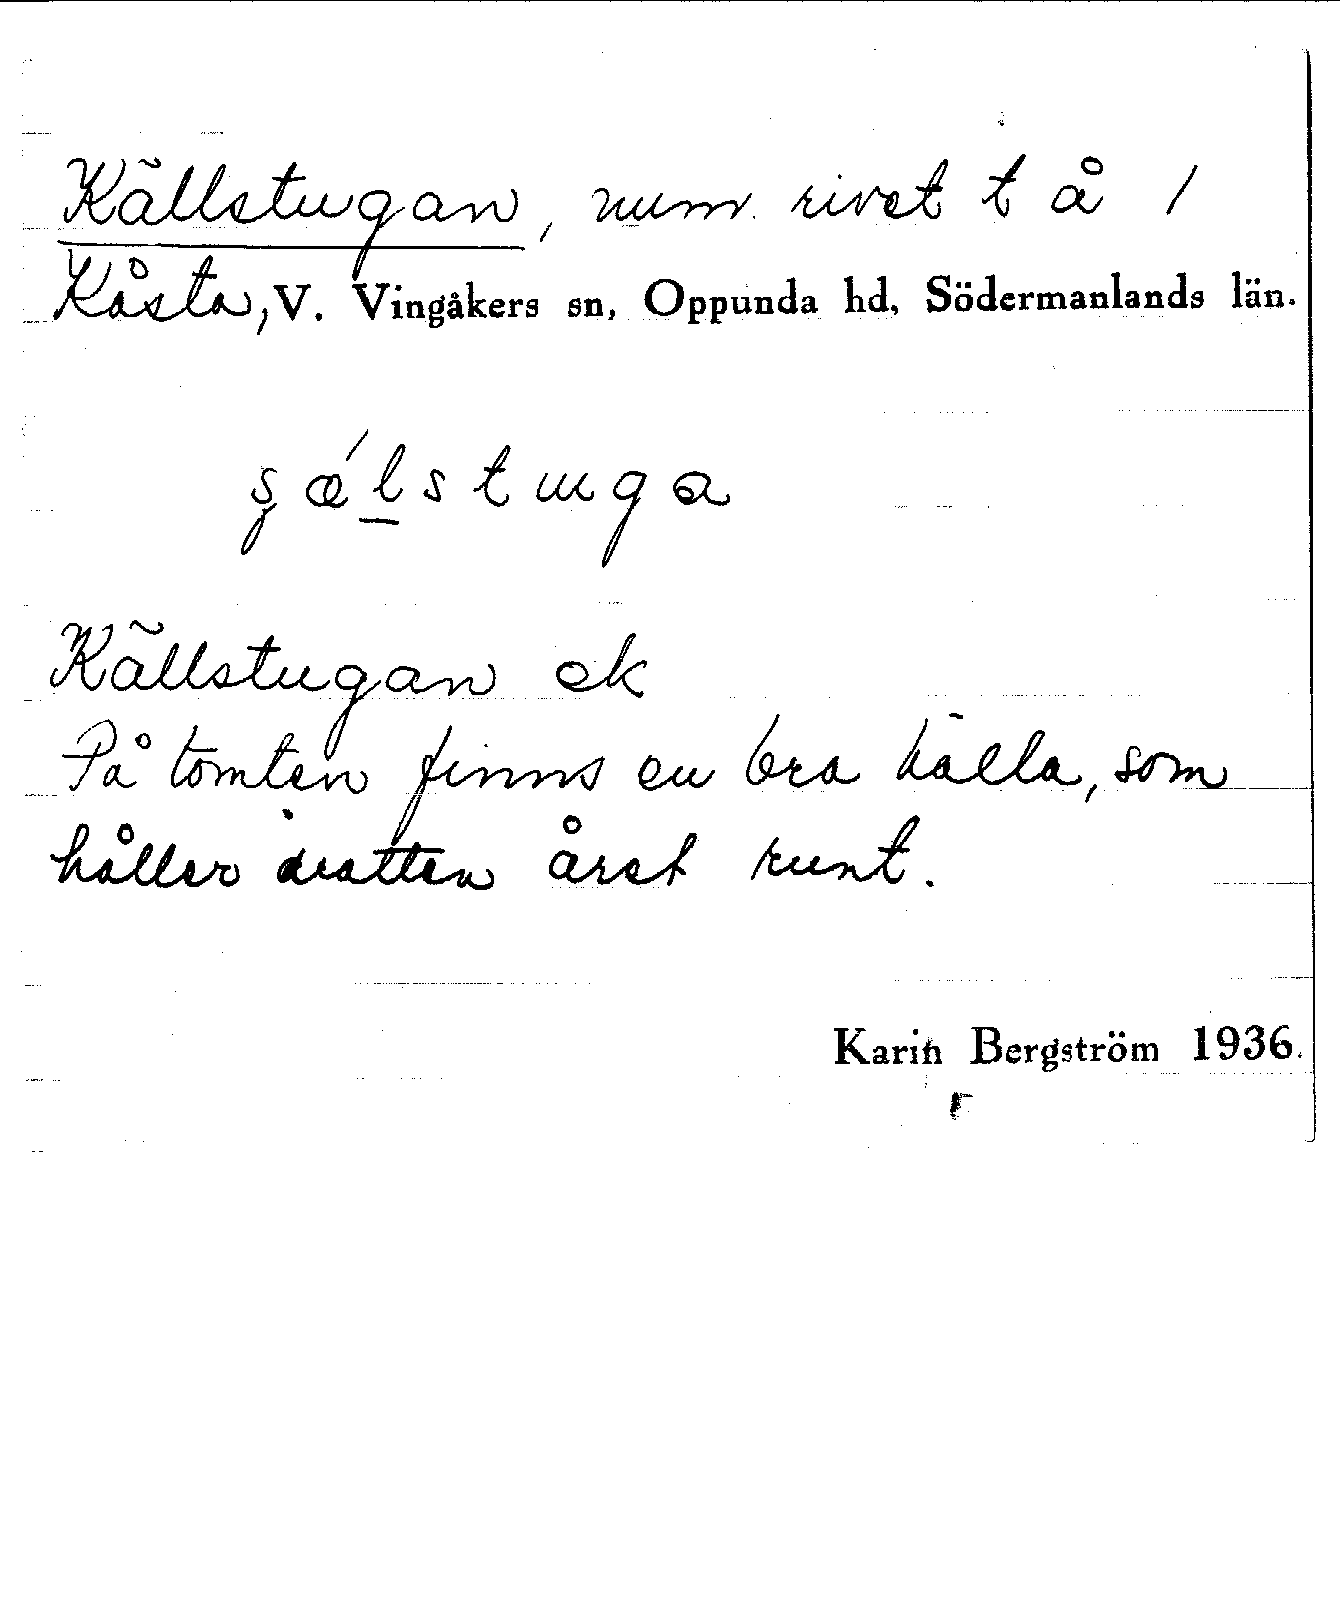 Källstugan, num. rivet t å /
Kåsta, V. Vingåkers sn, Oppunda hd, Södermanlands län.
ʂæ´lstuga
Källstugan ek
På tomten finns en bra källa, som
håller vatten året runt.
Karin Bergström 1936.